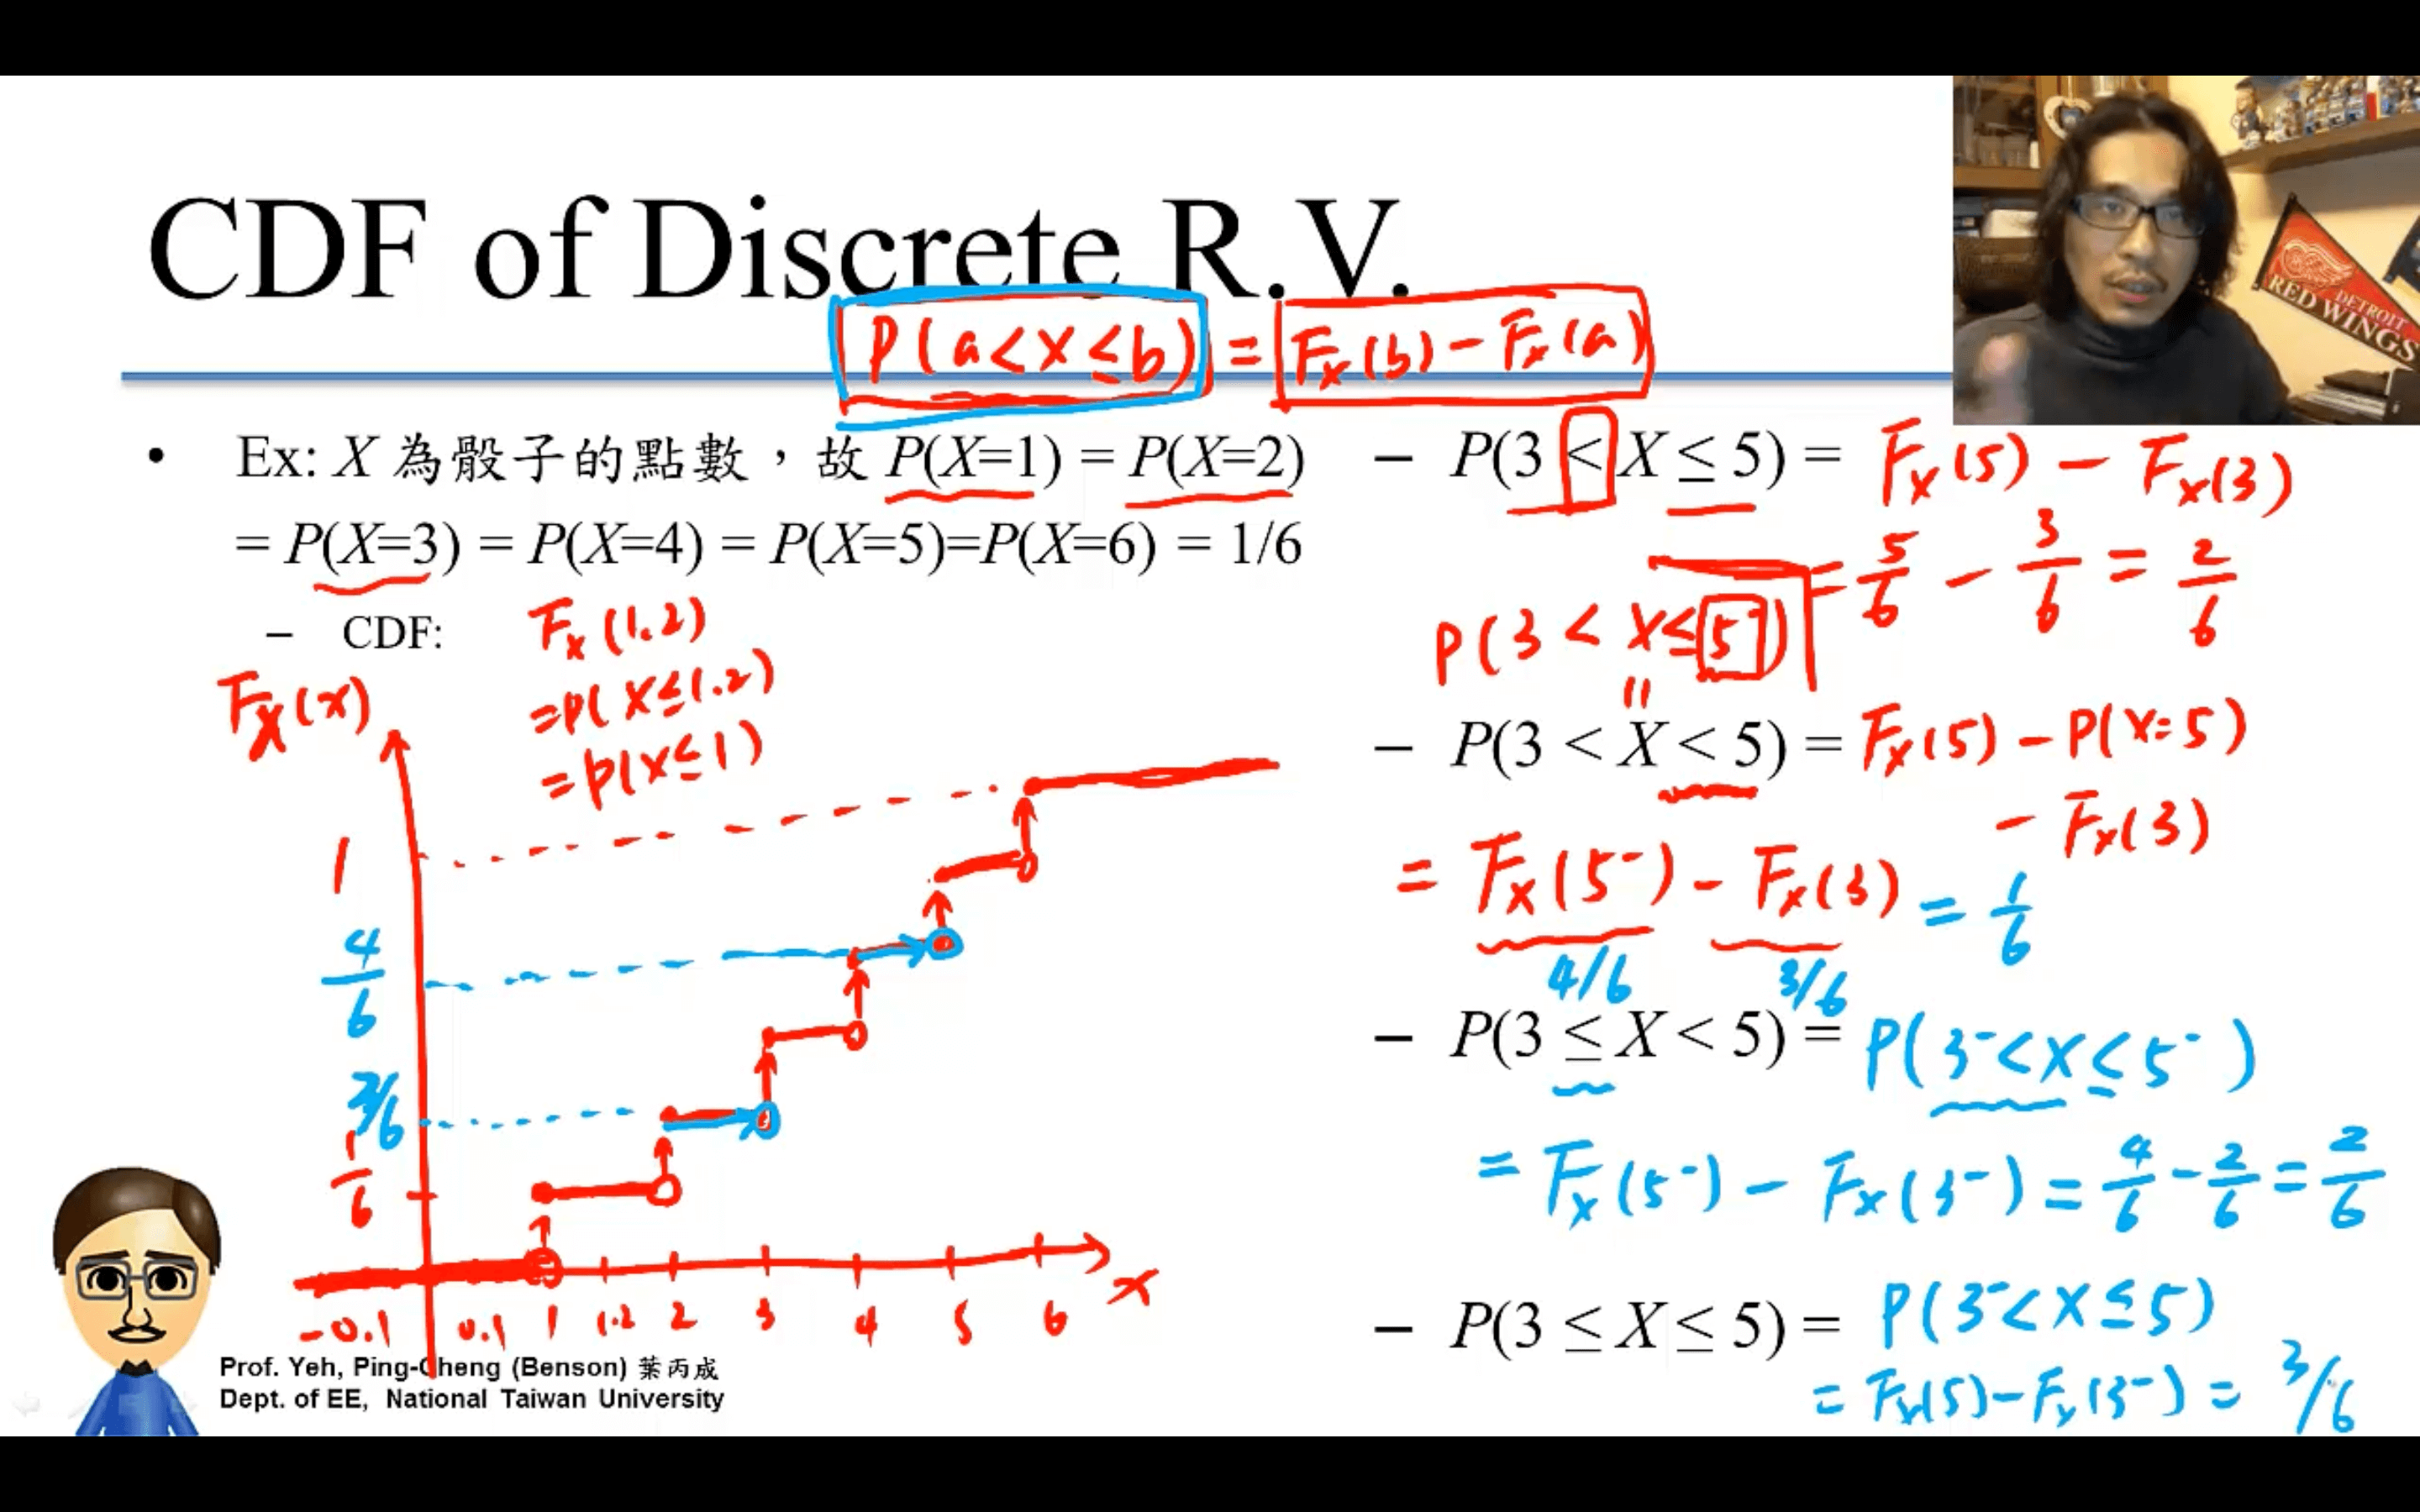 CDF of Discrete R.V.
P(a<X≤b) = Fx(b) - Fx(a)
DETROIT
RED WINGS
• Ex: X 為骰子的點數，故 P(X=1) = P(X=2)
= P(X=3) = P(X=4) = P(X=5)=P(X=6) = 1/6
– CDF:
Fx(1.2)
=P(X≤1.2)
=P(X≤1)
Fx(x)
1
4/6
2/6
1/6
-0.1 0.1 1 1.2 2 3 4 5 6 x
– P(3 < X ≤ 5) = Fx(5) - Fx(3)
= 5/6 - 3/6 = 2/6
P(3 < X≤5⁻)
=
– P(3 < X < 5) = Fx(5) - P(X=5)
- Fx(3)
= Fx(5⁻) - Fx(3) = 1/6
4/6 3/6
– P(3 ≤ X < 5) = P(3⁻<X≤5⁻)
= Fx(5⁻) - Fx(3⁻) = 4/6 - 2/6 = 2/6
– P(3 ≤ X ≤ 5) = P(3⁻<X≤5)
= Fx(5)-Fx(3⁻) = 3/6
Prof. Yeh, Ping-Cheng (Benson) 葉丙成
Dept. of EE, National Taiwan University